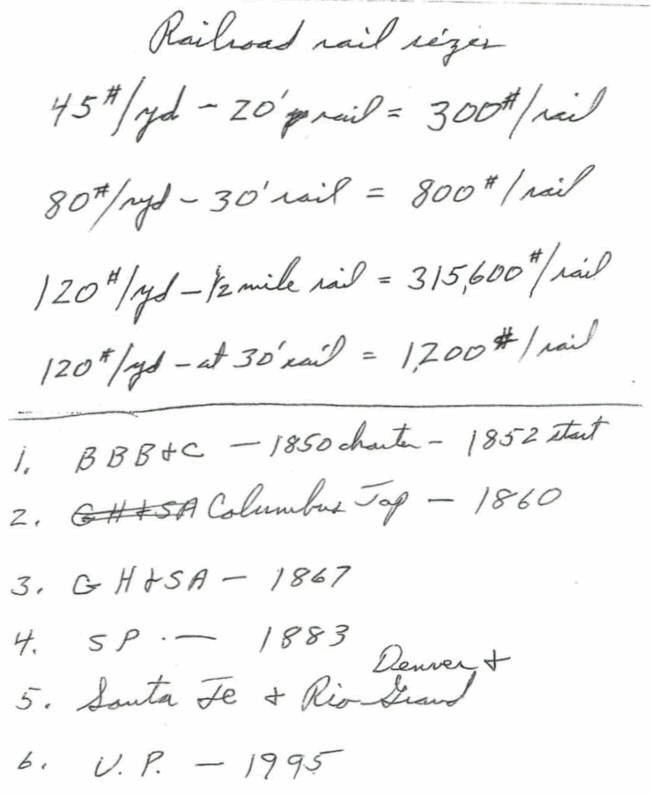 Railroad rail sizes
45#/yd - 20' rail = 300#/rail
80#/yd - 30' rail = 800#/rail
120#/yd - 1/2 mile rail = 315,600#/rail
120#/yd - at 30' rail = 1,200#/rail
1. BBB&C - 1850 charter - 1852 start
2. GH&SA Columbus Tap - 1860
3. GH&SA - 1867
4. SP. - 1883
Denver &
5. Santa Fe & Rio Grand
6. U.P. - 1995